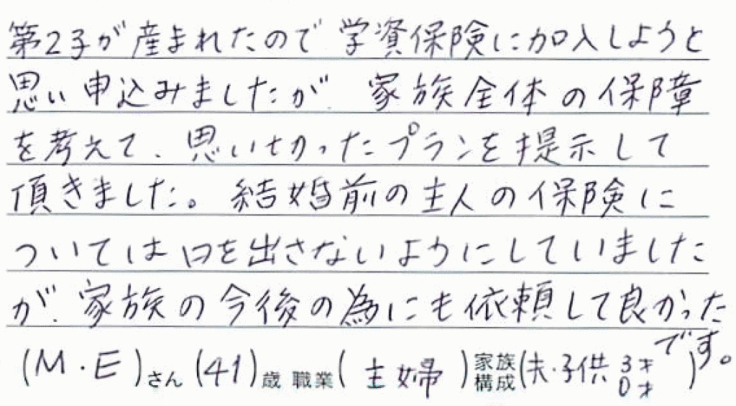 第2子が産まれたので学資保険に加入しようと
思い申込みましたが、家族全体の保障
を考えて、思い切ったプランを提示して
頂きました。結婚前の主人の保険に
ついては口を出さないようにしていました
が、家族の今後の為にも依頼して良かった
です。
(M・E)さん(41)歳 職業(主婦)家族構成(夫・子供 3才 0才)